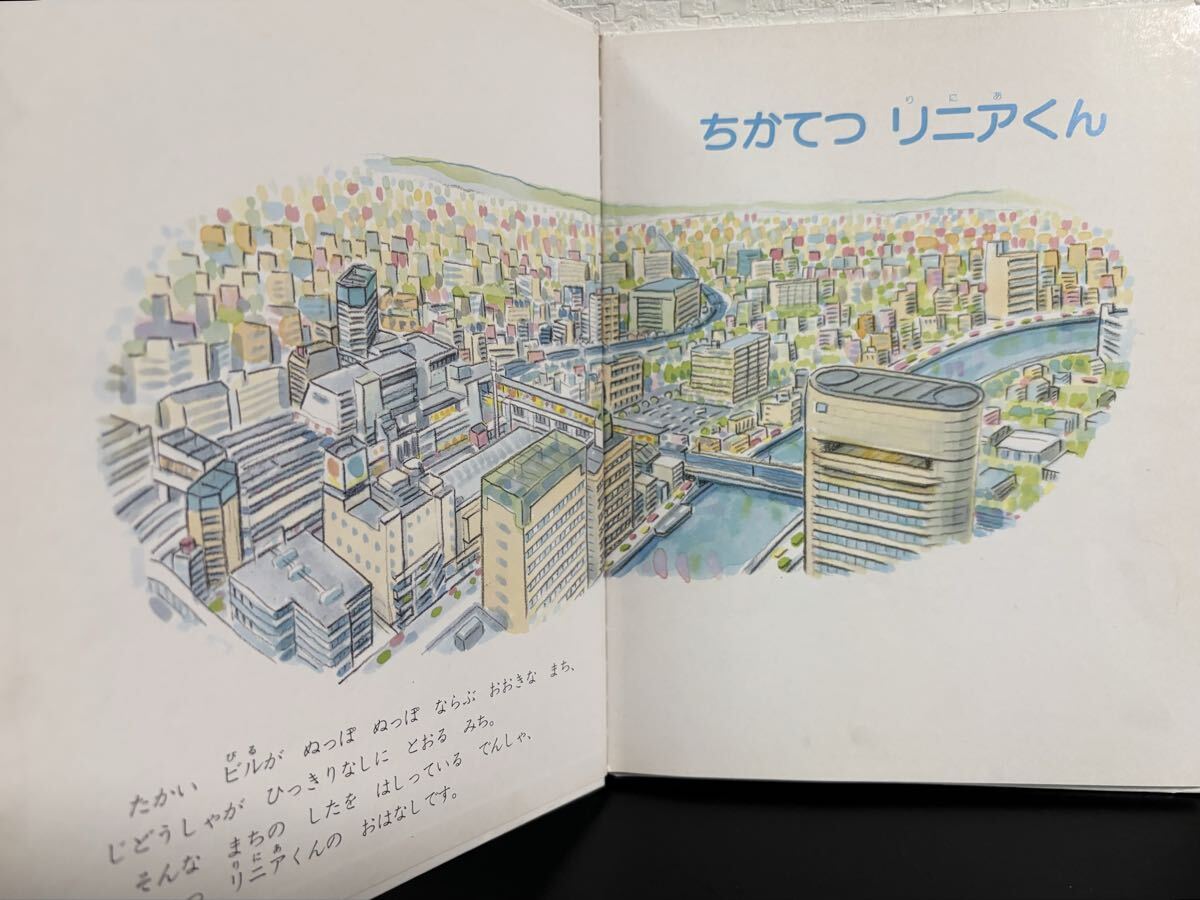 ちかてつ リニアくん
りにあ
たかい ビルが ぬっぽ ぬっぽ ならぶ おおきな まち、
びる
じどうしゃが ひっきりなしに とおる みち。
そんな まちの したを はしっている でんしゃ、
つ リニアくんの おはなしです。
りにあ